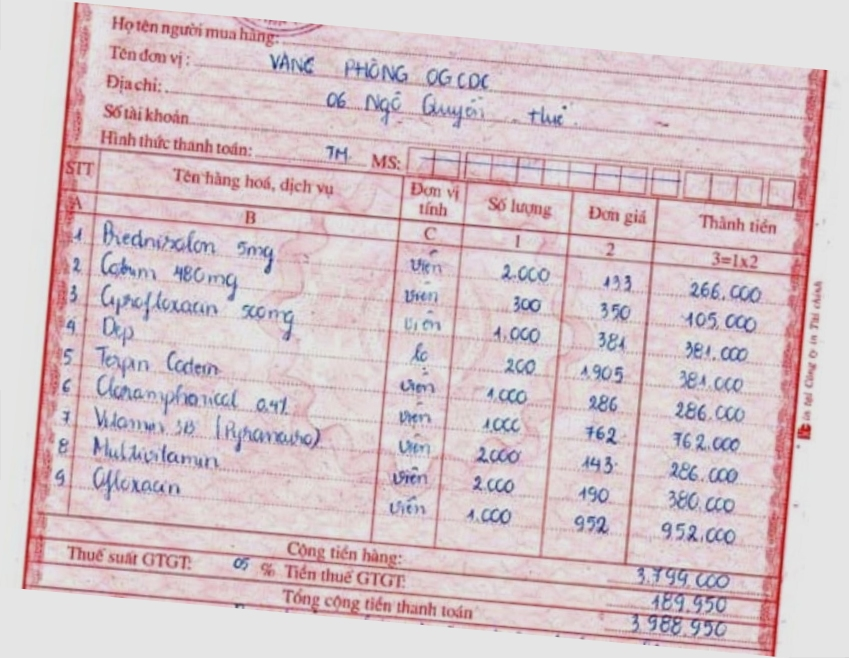 Họ tên người mua hàng:
Tên đơn vị: VĂNG PHÒNG OGCDC
Địa chỉ: 06 Ngô Quyền Huế
Số tài khoản
Hình thức thanh toán: TM. MS:
STT Tên hàng hoá, dịch vụ Đơn vị tính Số lượng Đơn giá Thành tiền
A B C 1 2 3=1x2
1 Prednisolon 5mg viên 2.000 133 266.000
2 Cotrim 480mg viên 300 350 105.000
3 Ciprofloxacin 500mg viên 1.000 381 381.000
4 Dep lo 200 1.905 381.000
5 Terpin Codein viên 1.000 286 286.000
6 Cloramphenical 0,4% viên 1.000 762 762.000
7 Vitamin 3B viên 2.000 143 286.000
8 Multivitamin viên 2.000 190 380.000
9 Ofloxacin viên 1.000 952 952.000
Cộng tiền hàng: 3.799.000
Thuế suất GTGT: 05 % Tiền thuế GTGT: 189.950
Tổng cộng tiền thanh toán 3.988.950
in tại Công ty in Tài chính